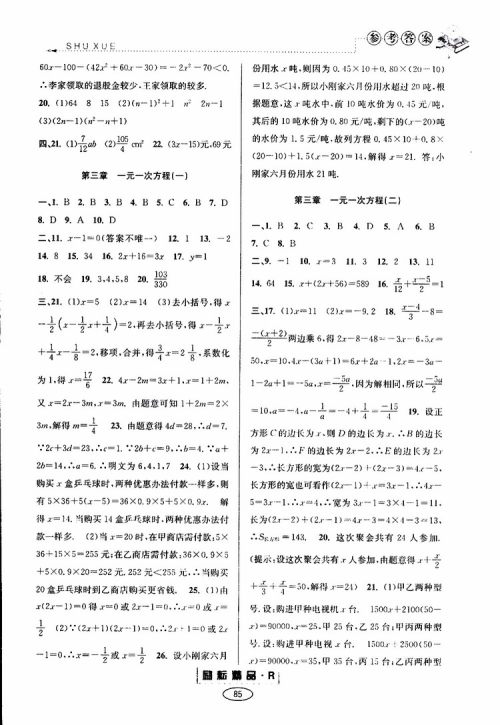 SHU XUE
参考答案
60x-100-(42x²+60x-30)=-2x²-70<0.
∴李家领取的退股金较少,王家领取的较多.
20. (1)64 8 15 (2)(n-1)²+1 n² 2n-1
(3)(2n-1)(n²-n+1)
四、21. (1)7/12 ab (2)105/4 cm² 22. (3x-15)元,69元
第三章 一元一次方程(一)
一、1. B 2. B 3. B 4. B 5. C 6. B 7. D
8. D 9. A 10. D
二、11. x-1=0(答案不唯一) 12. 1 13. -2
14. 8 15. 34 16. 2x+16=3x 17. y=1
18. 不会 19. 3,4,5,8 20. 103/330
三、21. (1)x=5 (2)x=14 (3)去小括号,得x
-1/2(x-1/2x+1/4)=2,再去小括号,得x-1/2x
+1/4x-1/8=2,移项,合并,得3/4x=2 1/8,系数化
为1,得x=17/6 22. 4x-2m=3x+1,x=1+2m,
又x=2x-3m,x=3m. 由题意可知1+2m=2×
3m,解得m=1/4 23. 由题意得4d=28,∴d=7.
∵2c+3d=23,∴c=1. ∵2b+c=9,∴b=4. ∵a+
2b=14,∴a=6. ∴明文为6,4,1,7 24. (1)设当
购买x盒乒乓球时,两种优惠办法付款一样多,则
有5×36+5(x-5)=36×0.9×5+5×0.9x. 解
得x=14. 当购买14盒乒乓球时,两种优惠办法付
款一样多. (2)当x=20时,在甲商店需付款:5×
36+15×5=255元;在乙商店需付款:36×0.9×5
+5×0.9×20=252元. 252元<255元,∴当购买
20盒乒乓球时到乙商店购买更省钱. 25. (1)由
x(2x-1)=0得x=0或2x-1=0,∴x=0或x=
1/2 (2)∵(2x+1)(2x-1)=0,∴2x+1=0或2x
-1=0,∴x=-1/2或x=1/2 26. 设小刚家六月
份用水x吨,则因为0.45×10+0.80×(20-10)
=12.5<14,所以小刚家六月份用水超过20吨,根
据题意,这x吨水中,前10吨水价为0.45元/吨,
其后的10吨水价为0.80元/吨,剩下的(x-20)吨
的水价为1.5元/吨,故列方程0.45×10+0.8×
(20-10)+1.5(x-20)=14,解得x=21. 答:小
刚家六月份用水21吨.
第三章 一元一次方程(二)
一、1. B 2. C 3. B 4. D 5. A 6. B
7. C 8. B
二、9. -1 10. x=3 11. 3 12. 2 13. 11
14. 64 15. x+(2x+56)=589 16. x/12+(x-5)/2=1
三、17. (1)x=11 (2)x=-9.2 18. (x-4)/3-8=
-(x+2)/2两边乘6,得2x-8-48=-3x-6,5x=
50,x=10,4x-(3a+1)=6x+2a-1,2x=-3a-
1-2a+1=-5a,x=-5a/2,因为解相同,所以-5a/2
=10,a=-4,a-1/a=-4+1/4=-15/4 19. 设正
方形C的边长为x,则D的边长为x. ∴B的边长
为2x-1,∴F的边长为2x-2,∴E的边长为2x
-3,∴长方形的宽为(2x-2)+(2x-3)=4x-5,
长方形的宽也可看作(2x-1)+x=3x-1,∴4x-
5=3x-1,∴x=4,∴宽为3x-1=3×4-1=11,
长为(2x-2)+(2x-1)=4x-3=4×4-3=13,
=143. 20. 这次聚会共有24人参加.
(提示:设这次聚会共有x人参加,由题意得x+x/2
+x/3+x/4=50,解得x=24) 21. (1)甲乙两种型
号.设:购进甲种电视机x台. 1500x+2100(50-
x)=90000,x=25,甲25台,乙25台;甲丙两种型
号.设:购进甲种电视x台. 1500x+2500(50-
x)=90000,x=35,甲35台,丙15台;乙丙两种型
励耘精品·R
85